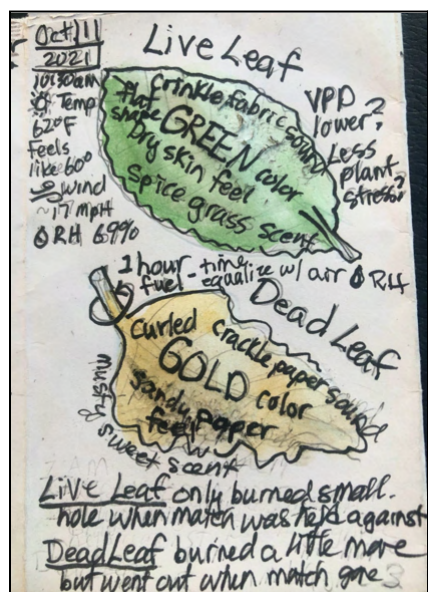 Oct 11
2021
10:30am
Temp
62°F
Feels
like 60°
wind
~17 mpH
RH 69%
Live Leaf
crinkle fabric sound
flat
shape
GREEN color
Dry skin feel
Spice grass scent
VPD
lower?
Less
plant
stress?
1 hour - time
fuel - equalize w/ air RH
Dead Leaf
Curled crackle paper sound
GOLD color
sandy paper
feel
musty sweet scent
Live Leaf only burned small.
hole when match was held against
Dead Leaf burned a little more
but went out when match gone
3